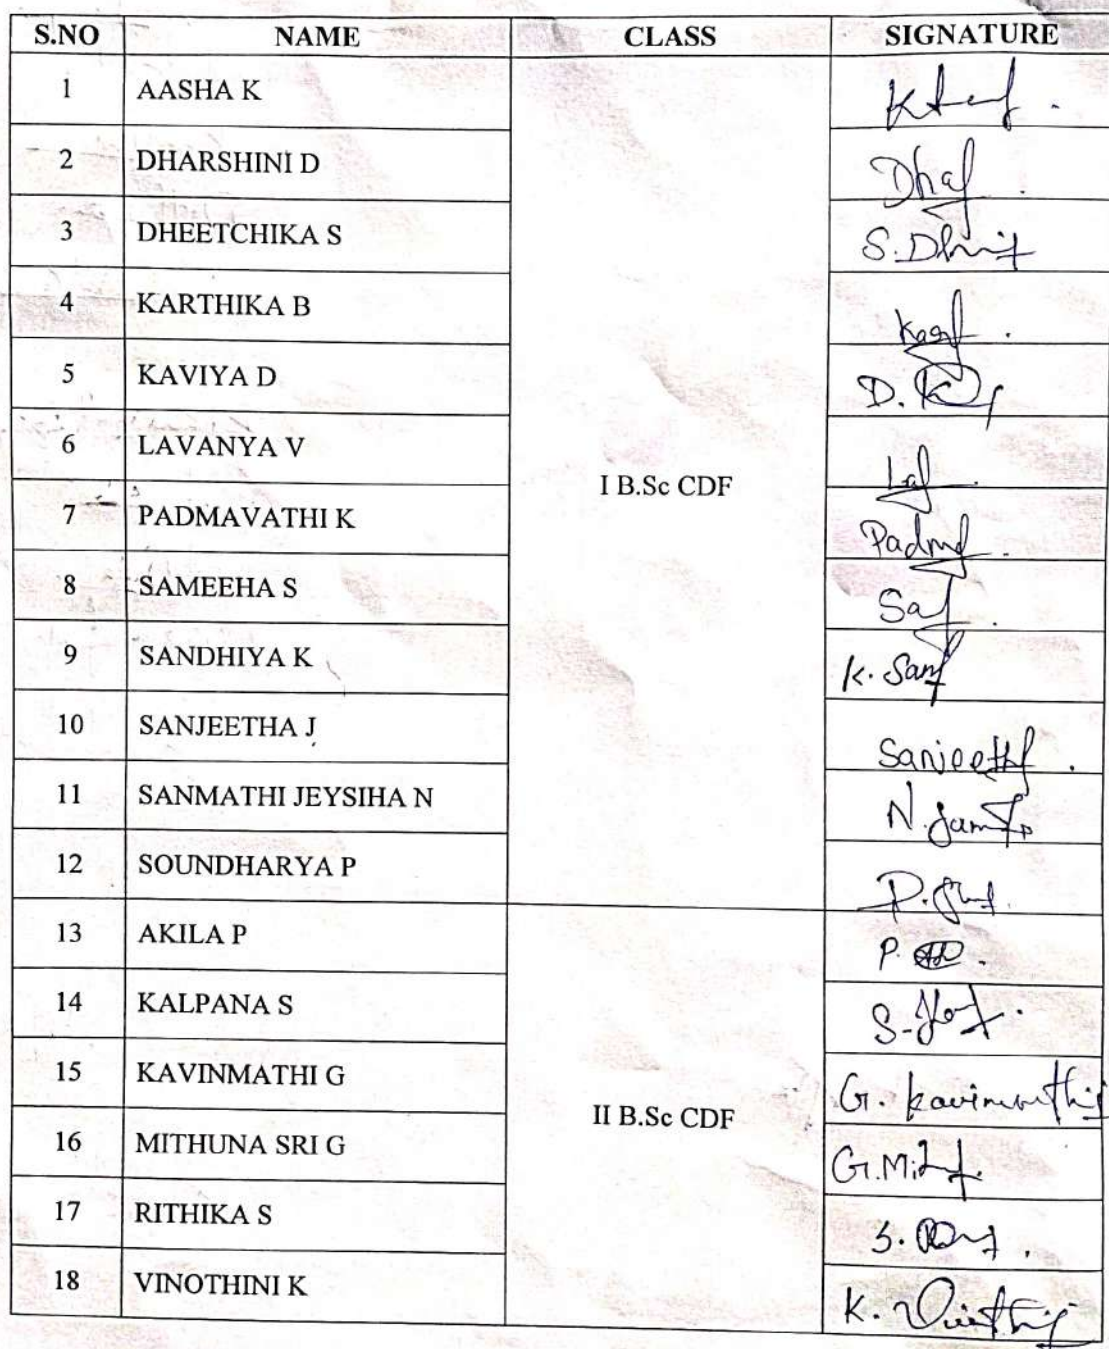 S.NO NAME CLASS SIGNATURE
1 AASHA K
2 DHARSHINI D
3 DHEETCHIKA S S.
4 KARTHIKA B
5 KAVIYA D D.
6 LAVANYA V
I B.Sc CDF
7 PADMAVATHI K
8 SAMEEHA S
9 SANDHIYA K K.
10 SANJEETHA J
11 SANMATHI JEYSIHA N N.
12 SOUNDHARYA P P.
13 AKILA P P.
14 KALPANA S S.
15 KAVINMATHI G G. Kavinmathi
II B.Sc CDF
16 MITHUNA SRI G G.
17 RITHIKA S S.
18 VINOTHINI K K.